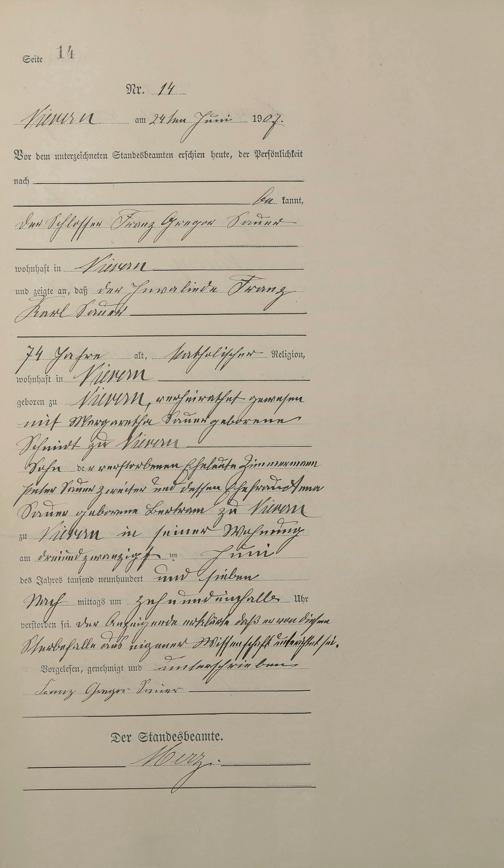 Seite 14
Nr. 14
Nievern am 24ten Juni 1907.
Vor dem unterzeichneten Standesbeamten erschien heute, der Persönlichkeit
nach
be kannt,
der Schlosser Franz Gregor Sauer
wohnhaft in Nievern
und zeigte an, daß der Invaliede Franz
Karl Sauer
74 Jahre alt, katholischer Religion,
wohnhaft in Nievern
geboren zu Nievern, verheirathet gewesen
mit Margaretha Sauer geborene
Schmidt zu Nievern
Sohn der verstorbenen Eheleute Zimmermann
Peter Sauer zweiter und dessen Ehefrau
Sauer geborene Bertram zu Nievern
zu Nievern in seiner Wohnung
am dreiundzwanzigst en Juni
des Jahres tausend neunhundert und sieben
Nach mittags um zehnundeinhalb Uhr
verstorben sei. Der Anzeigende erklärte daß er von diesem
Sterbefalle aus eigener Wissenschaft unterrichtet sei.
Vorgelesen, genehmigt und unterschrieben
Franz Gregor Sauer
Der Standesbeamte.
Merz.